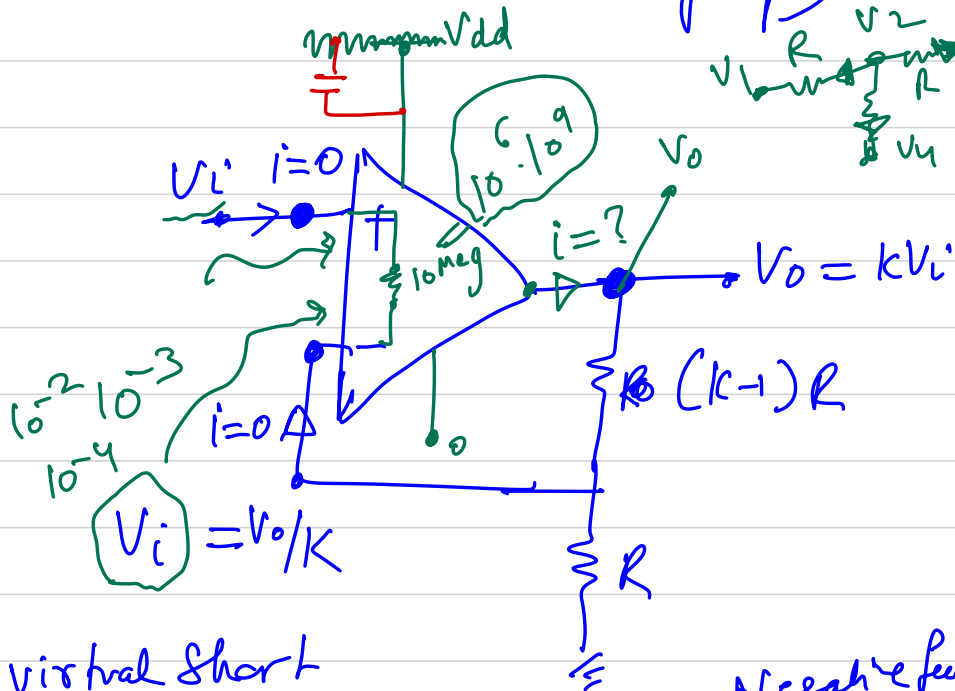 Vdd
V2
R
R
V1
V4
10^6 . 10^9
Vi
i=0
+
10 meg
i=?
Vo
Vo = kVi
(k-1)R
10^-2 10^-3
10^-4
i=0
0
Vi = Vo/K
R
virtual Short
Negative